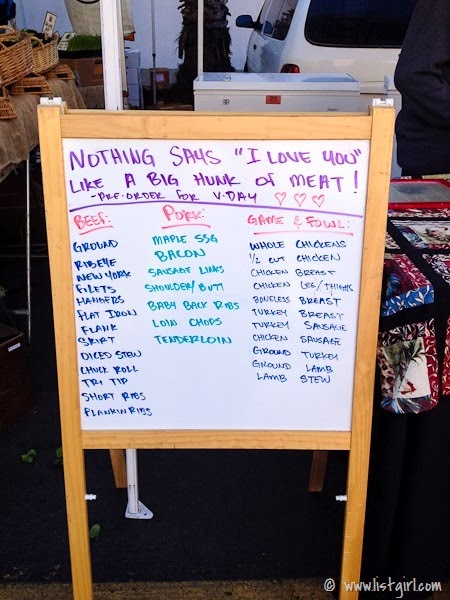 NOTHING SAYS "I LOVE YOU"
LIKE A BIG HUNK OF MEAT!
-PRE-ORDER FOR V-DAY ♡ ♡ ♡
BEEF:
GROUND
RIBEYE
NEW YORK
FILETS
HANGERS
FLAT IRON
FLANK
SKIRT
DICED STEW
CHUCK ROLL
TRI TIP
SHORT RIBS
FLANKIN RIBS
PORK:
MAPLE SSG
BACON
SAUSAGE LINKS
SHOULDER/BUTT
BABY BACK RIBS
LOIN CHOPS
TENDERLOIN
GAME & FOWL:
WHOLE CHICKENS
1/2 CUT CHICKEN
CHICKEN BREAST
CHICKEN LEG/THIGHS
BONELESS BREAST
TURKEY BREAST
TURKEY SAUSAGE
CHICKEN SAUSAGE
GROUND TURKEY
GROUND LAMB
LAMB STEW
© www.listgirl.com